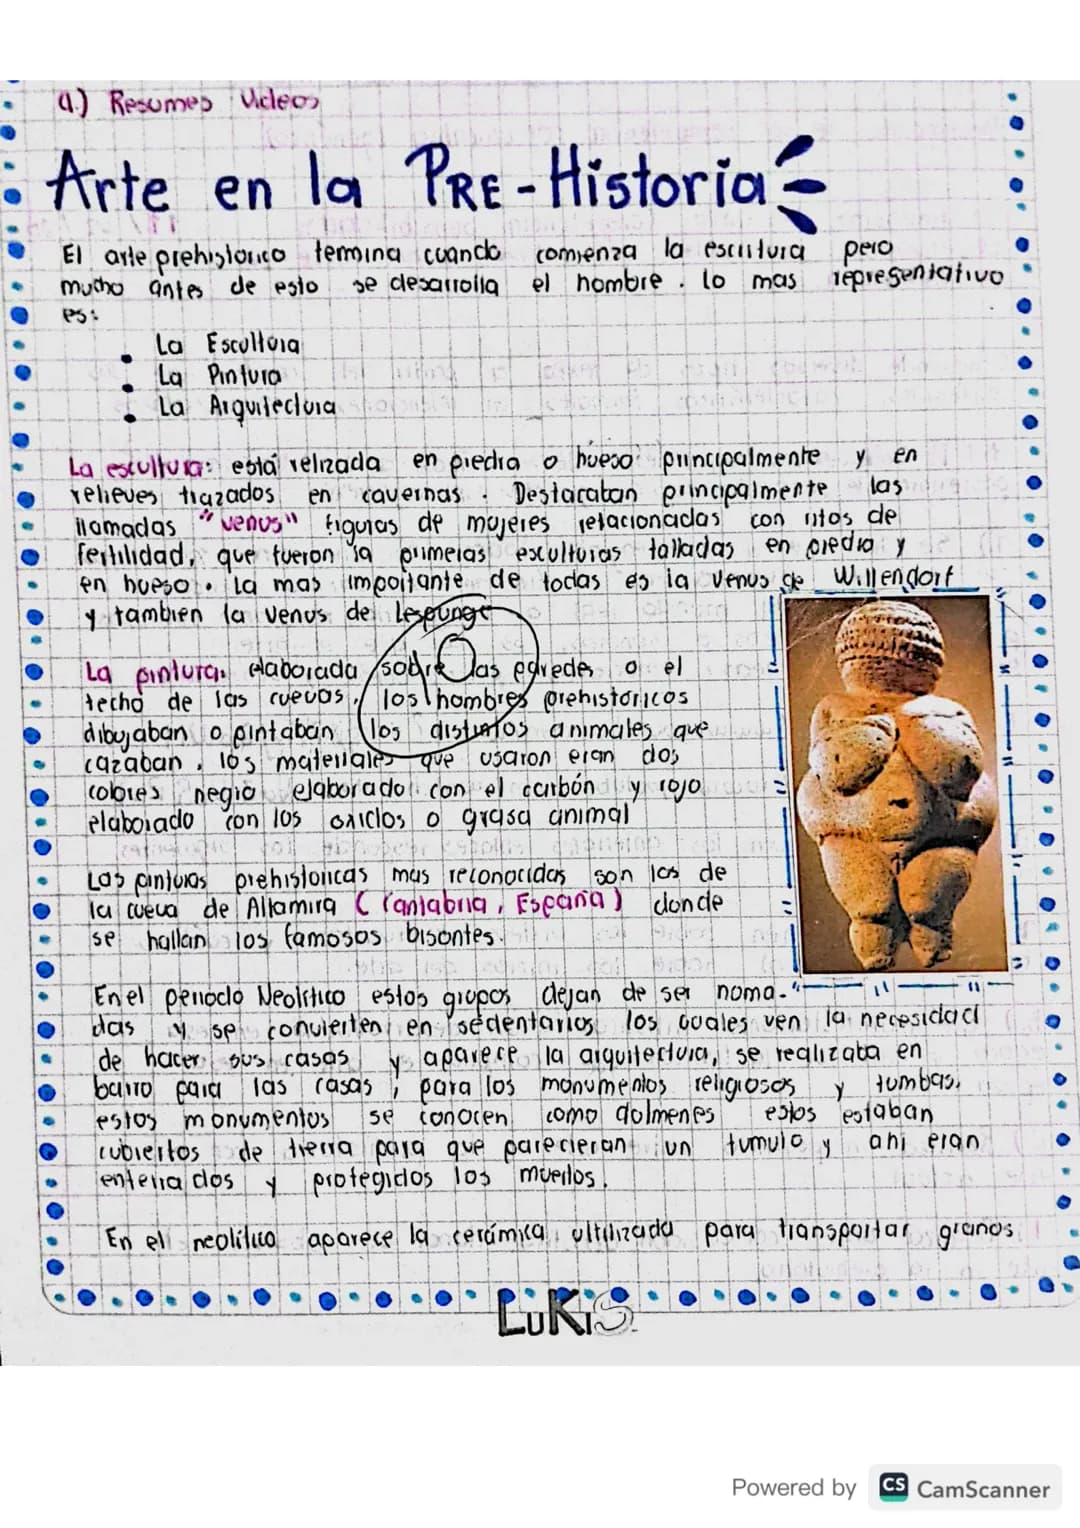 a.) Resumes Videos
Arte en la PRE-Historia
El arte prehistorico termina cuando comienza la escritura pero
mucho antes de esto se desarrolla el hombre. lo mas representativo
es:
La Escultura
La Pintura
La Arquitectura
La escultura: está relizada en piedra o hueso principalmente y en
relieves trazados en cavernas. Destacaban principalmente las
llamadas "venus" figuras de mujeres relacionadas con ritos de
fertilidad, que fueron la primeras esculturas talladas en piedra y
en hueso. La mas importante de todas es la Venus de Willendorf
y tambien la venus de Lespunge
La pintura: elaborada sobre las paredes o el
techo de las cuevas, los hombres prehistóricos
dibujaban o pintaban los distintos animales que
cazaban, los materiales que usaron eran dos
colores negro elaborado con el carbón y rojo
elaborado con los oxiclos o grasa animal
Las pinturas prehistoricas mas reconocidas son las de
la cueva de Altamira (Cantabria, España) donde
se hallan los famosos bisontes.
En el periodo Neolitico estos grupos dejan de ser noma-
das y se convierten en sedentarios los cuales ven la necesidad
de hacer sus casas y aparece la arquitectura, se realizaba en
barro para las casas, para los monumentos religiosos y tumbas,
estos monumentos se conocen como dolmenes estos estaban
cubiertos de tierra para que parecieran un tumulo y ahi eran
enterrados y protegidos los muertos.
En el neolitico aparece la cerámica ultilizada para transportar granos
LuKiS
Powered by CS CamScanner